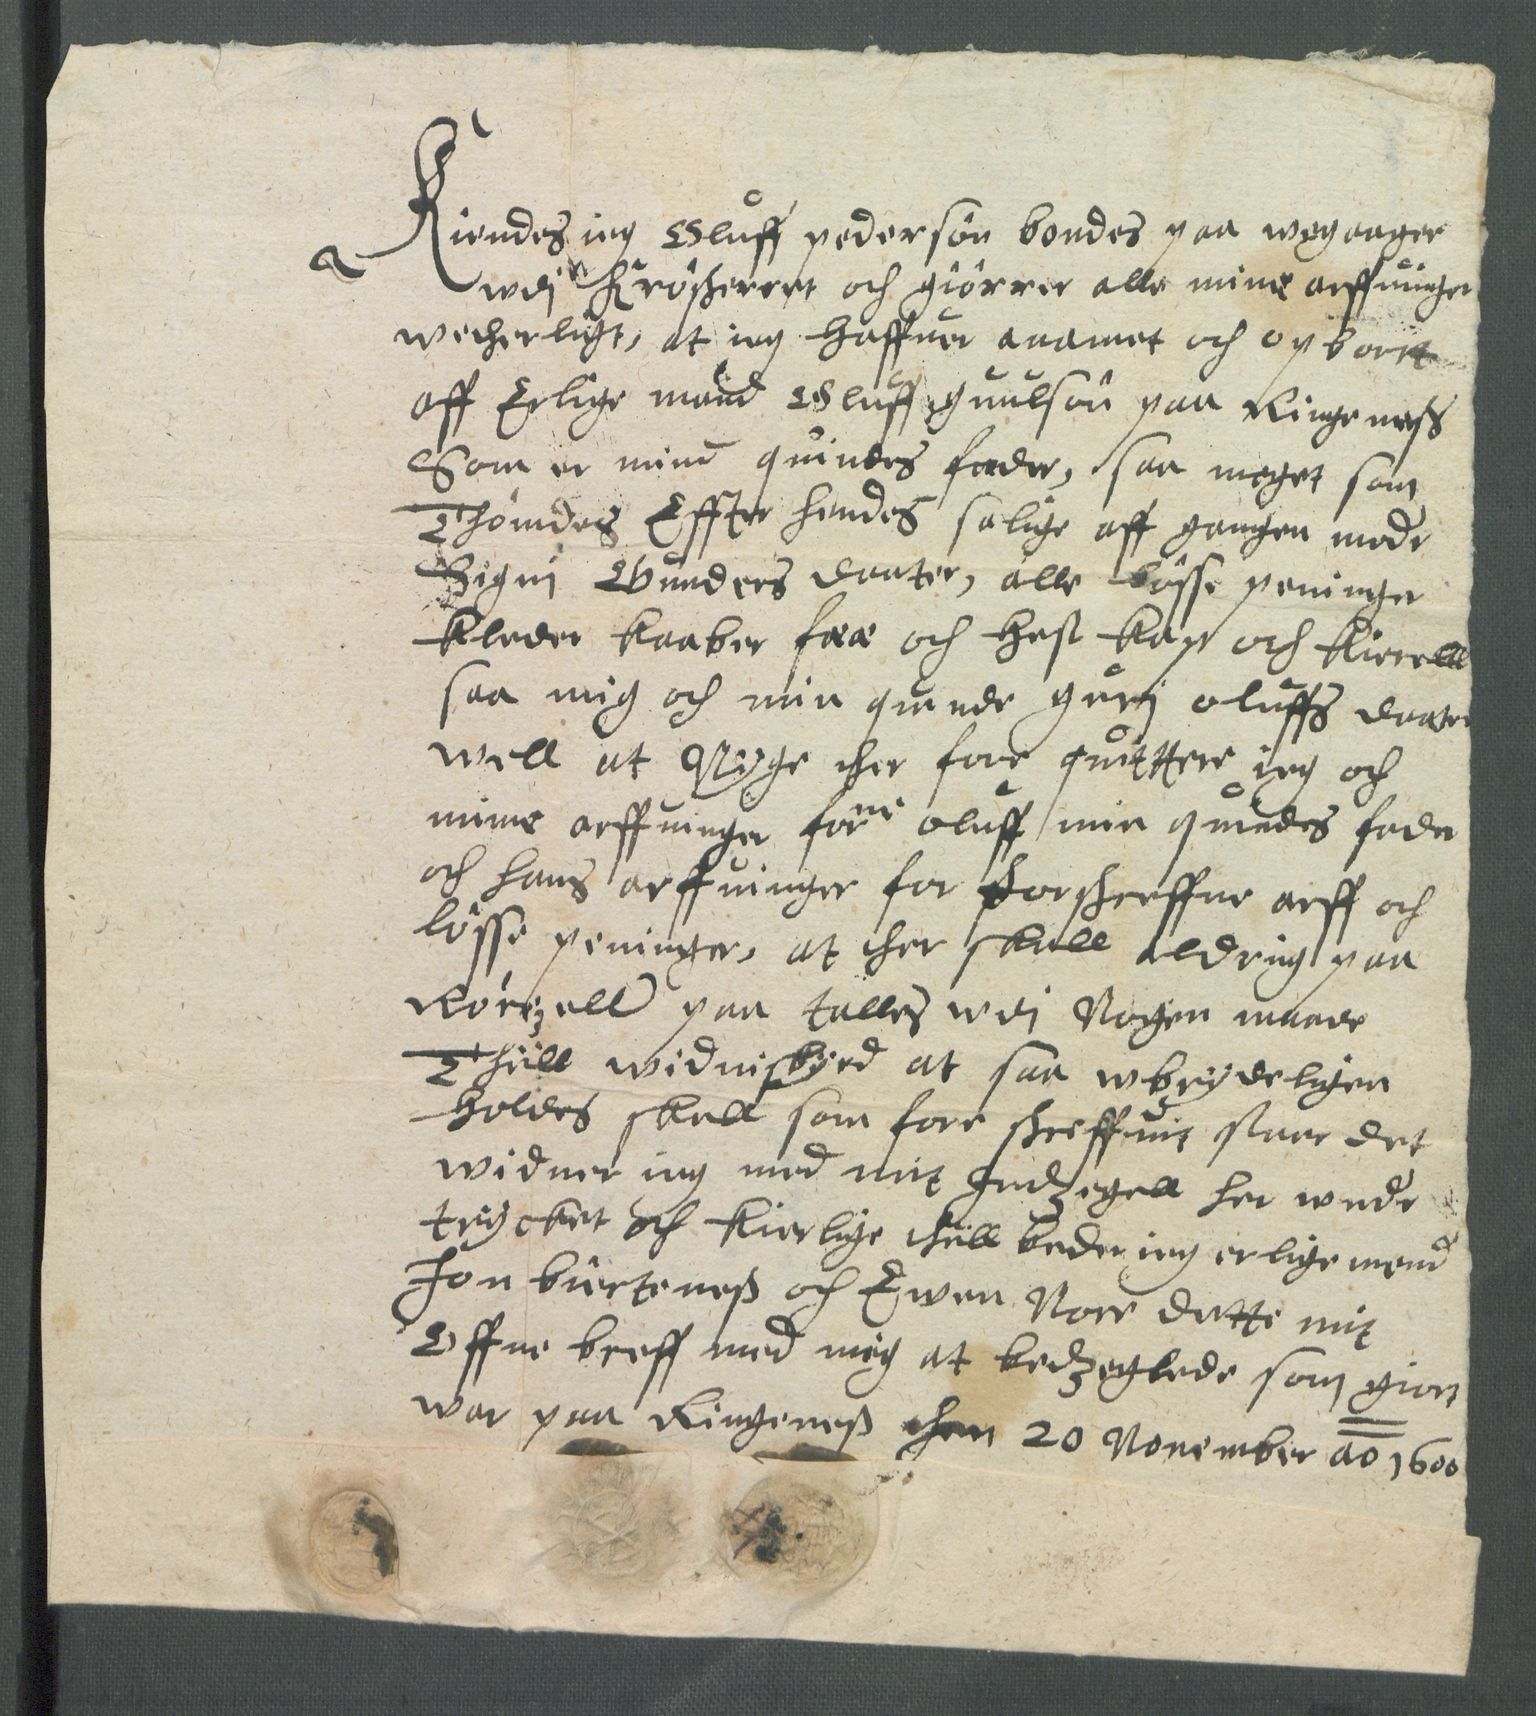 Kiendes ieg Oluff pedersön bondes paa wegaager
wdj Krösherret och giörrer alle mine arffuinger
wetherligt, at ieg Haffuer anamet och opborit
aff Erlige mand Oluff guulsön paa Ringeneß
Som er mine quindes fader, saa meget som
Thömdes Effter hendes salige aff gangen moder
Signi Gunders daater, alle lösse peninger
kleder kaaber fææ och Hest kap och kierell
saa mig och min quinde gurj oluffs daater
well at Nyge ther fore quittere ieg och
mine arffuinger forne oluff min quindes fader
och hans arffuinger for forschreffne arff och
lösse peninger, at ther skall aldrig paa
Rörzell paa talles wdj Nogen maade
Thill widnisbyrd at saa wbrydeligen
Holdes skall som fore schreffuit staar det
widner ieg med mit Indzegell her wnder
trycket och kierlige thill beder ieg erlige mend
Jon bierteneß och Ewen Nore dette mit
Offne breff med mig at bedzeglede som giort
war paa Ringeneß then 20 Nouember ao 1600